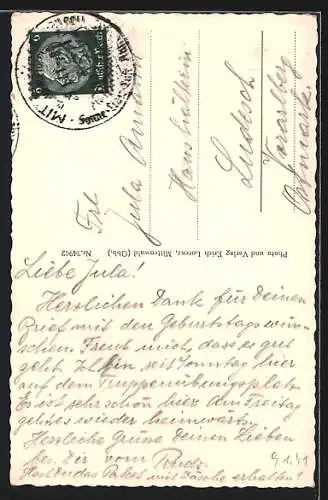 MIT
6
Deutsches Reich
Frl
Jula
Haushälterin
Ludesch
Vorarlberg
Ostmark
Photo und Verlag Erich Lorenz, Mittenwald (Obb.)
Liebe Jula!
Herzlichen Dank für Deinen
Brief mit den Geburtstagswün-
schen. Freut mich, dass es gut
geht. bin seit Sonntag hier
auf dem Truppenübungsplatz.
Es ist sehr schön hier. Am Freitag
geht es wieder heimwärts.
Herzliche Grüsse Deinen Lieben
bes. Dir vom Rudi
Hast Du das Paket mit Wäsche erhalten?